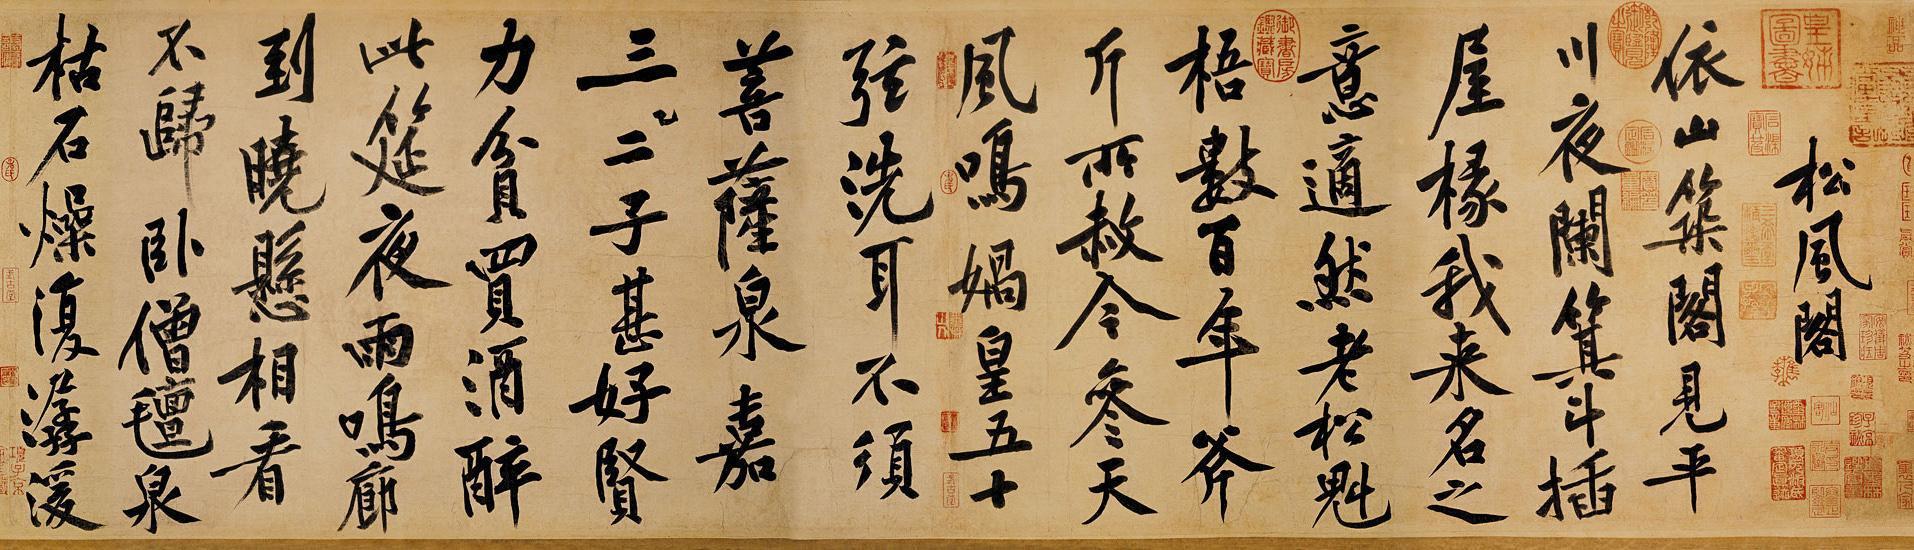 皇姊圖書
松風閣
依山築閣見平
川夜闌箕斗插
屋椽我来名之
意適然老松魁
御書房鑑藏寶
梧數百年斧
斤所赦今參天
風鳴媧皇五十
弦洗耳不須
菩薩泉嘉
三二子甚好賢
力貧買酒醉
此筵夜雨鳴廊
到曉懸相看
不歸臥僧氈泉
枯石燥復潺湲